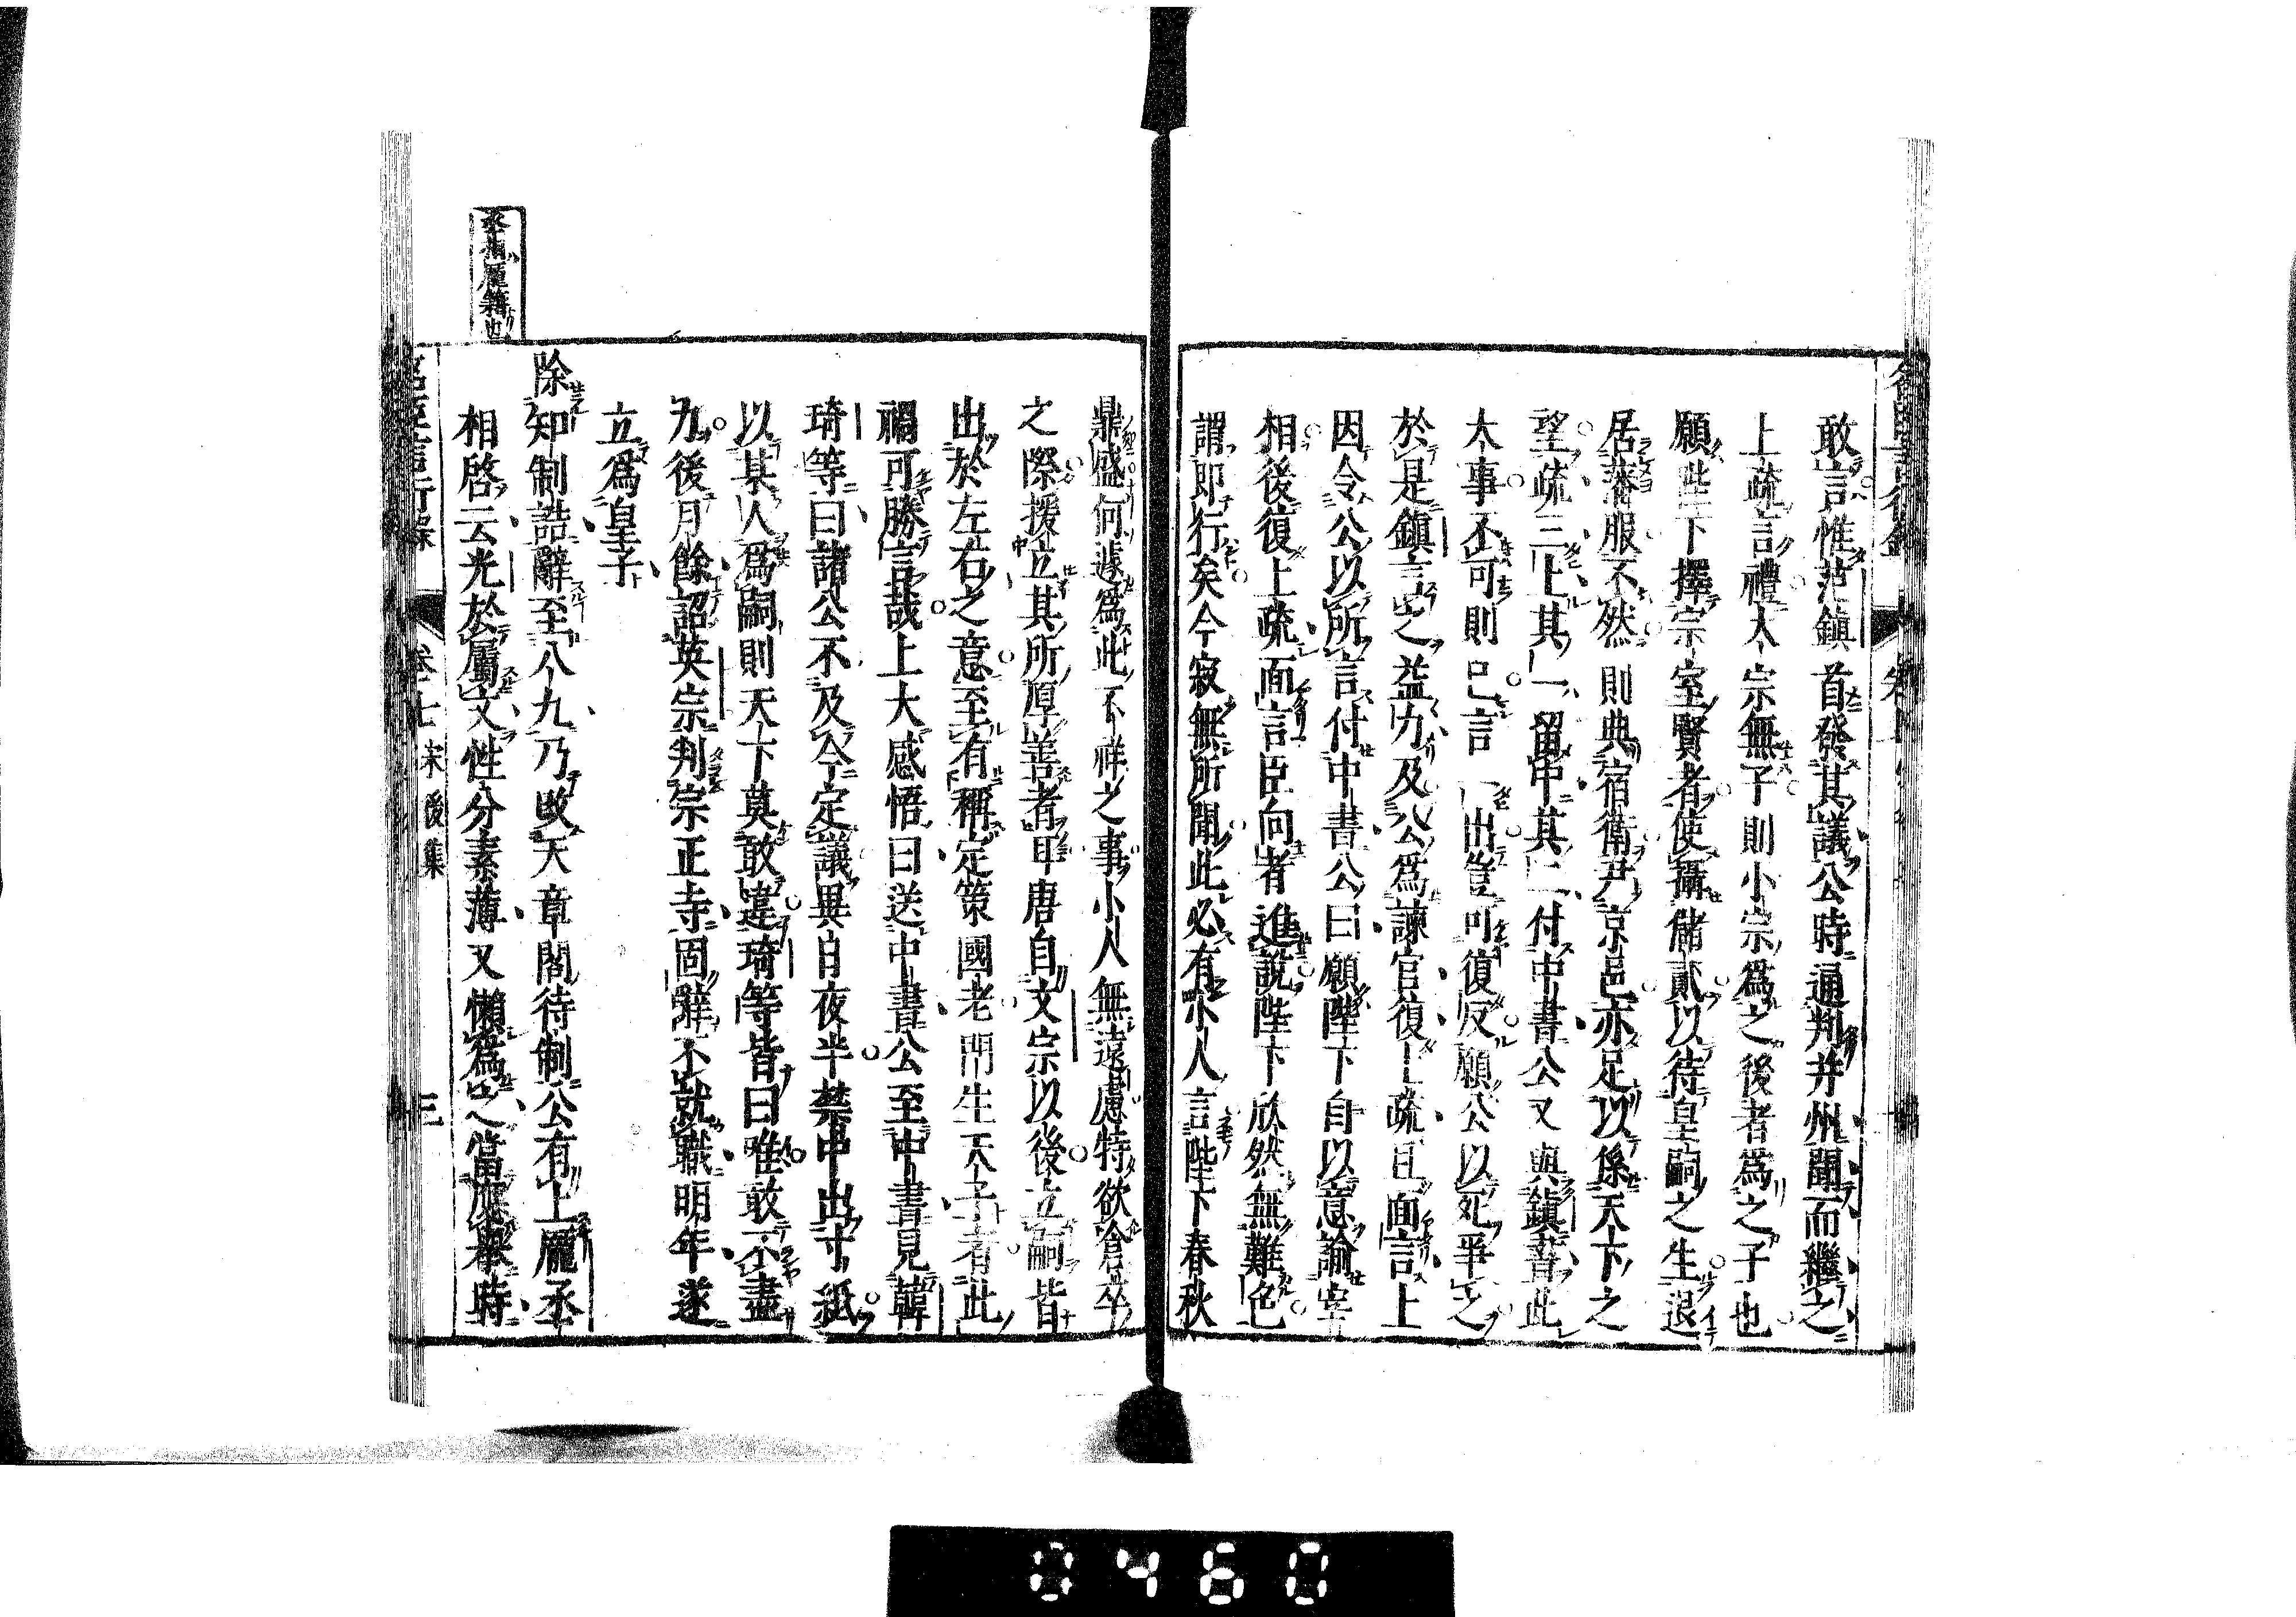 敢言惟范鎮首發其議公時通判并州聞而繼之
上疏言禮大宗無子則小宗爲之後者爲之子也
願陛下擇宗室賢者使攝儲貳以待皇嗣之生退
居藩服不然則典宿衛尹京邑亦足以係天下之
望疏三上其一留中其二付中書公又與鎮書此
大事不可則已言一出豈可復反願公以死爭之
於是鎮言之益力及公爲諫官復上疏且面言上
因令公以所言付中書公曰願陛下自以意諭宰
相後復上疏面言臣向者進說陛下欣然無難色
謂即行矣今寂無所聞此必有小人言陛下春秋
鼎盛何遽爲此不祥之事小人無遠慮特欲倉卒
之際援立其所厚善者耳唐自文宗以後立嗣皆
出於左右之意至有稱定策國老門生天子者此
禍可勝言哉上大感悟曰送中書公至中書見韓
琦等曰諸公不及今定議異日夜半禁中出寸紙
以某人爲嗣則天下莫敢違琦等皆曰唯敢不盡
力後月餘詔英宗判宗正寺固辭不就職明年遂
立爲皇子
除知制誥辭至八九乃改天章閣待制公有上龐丞
相啓云光於屬文性分素薄又懶爲之當應舉時
丞相龐籍也
名臣言行録 卷七 宋後集 三
0460